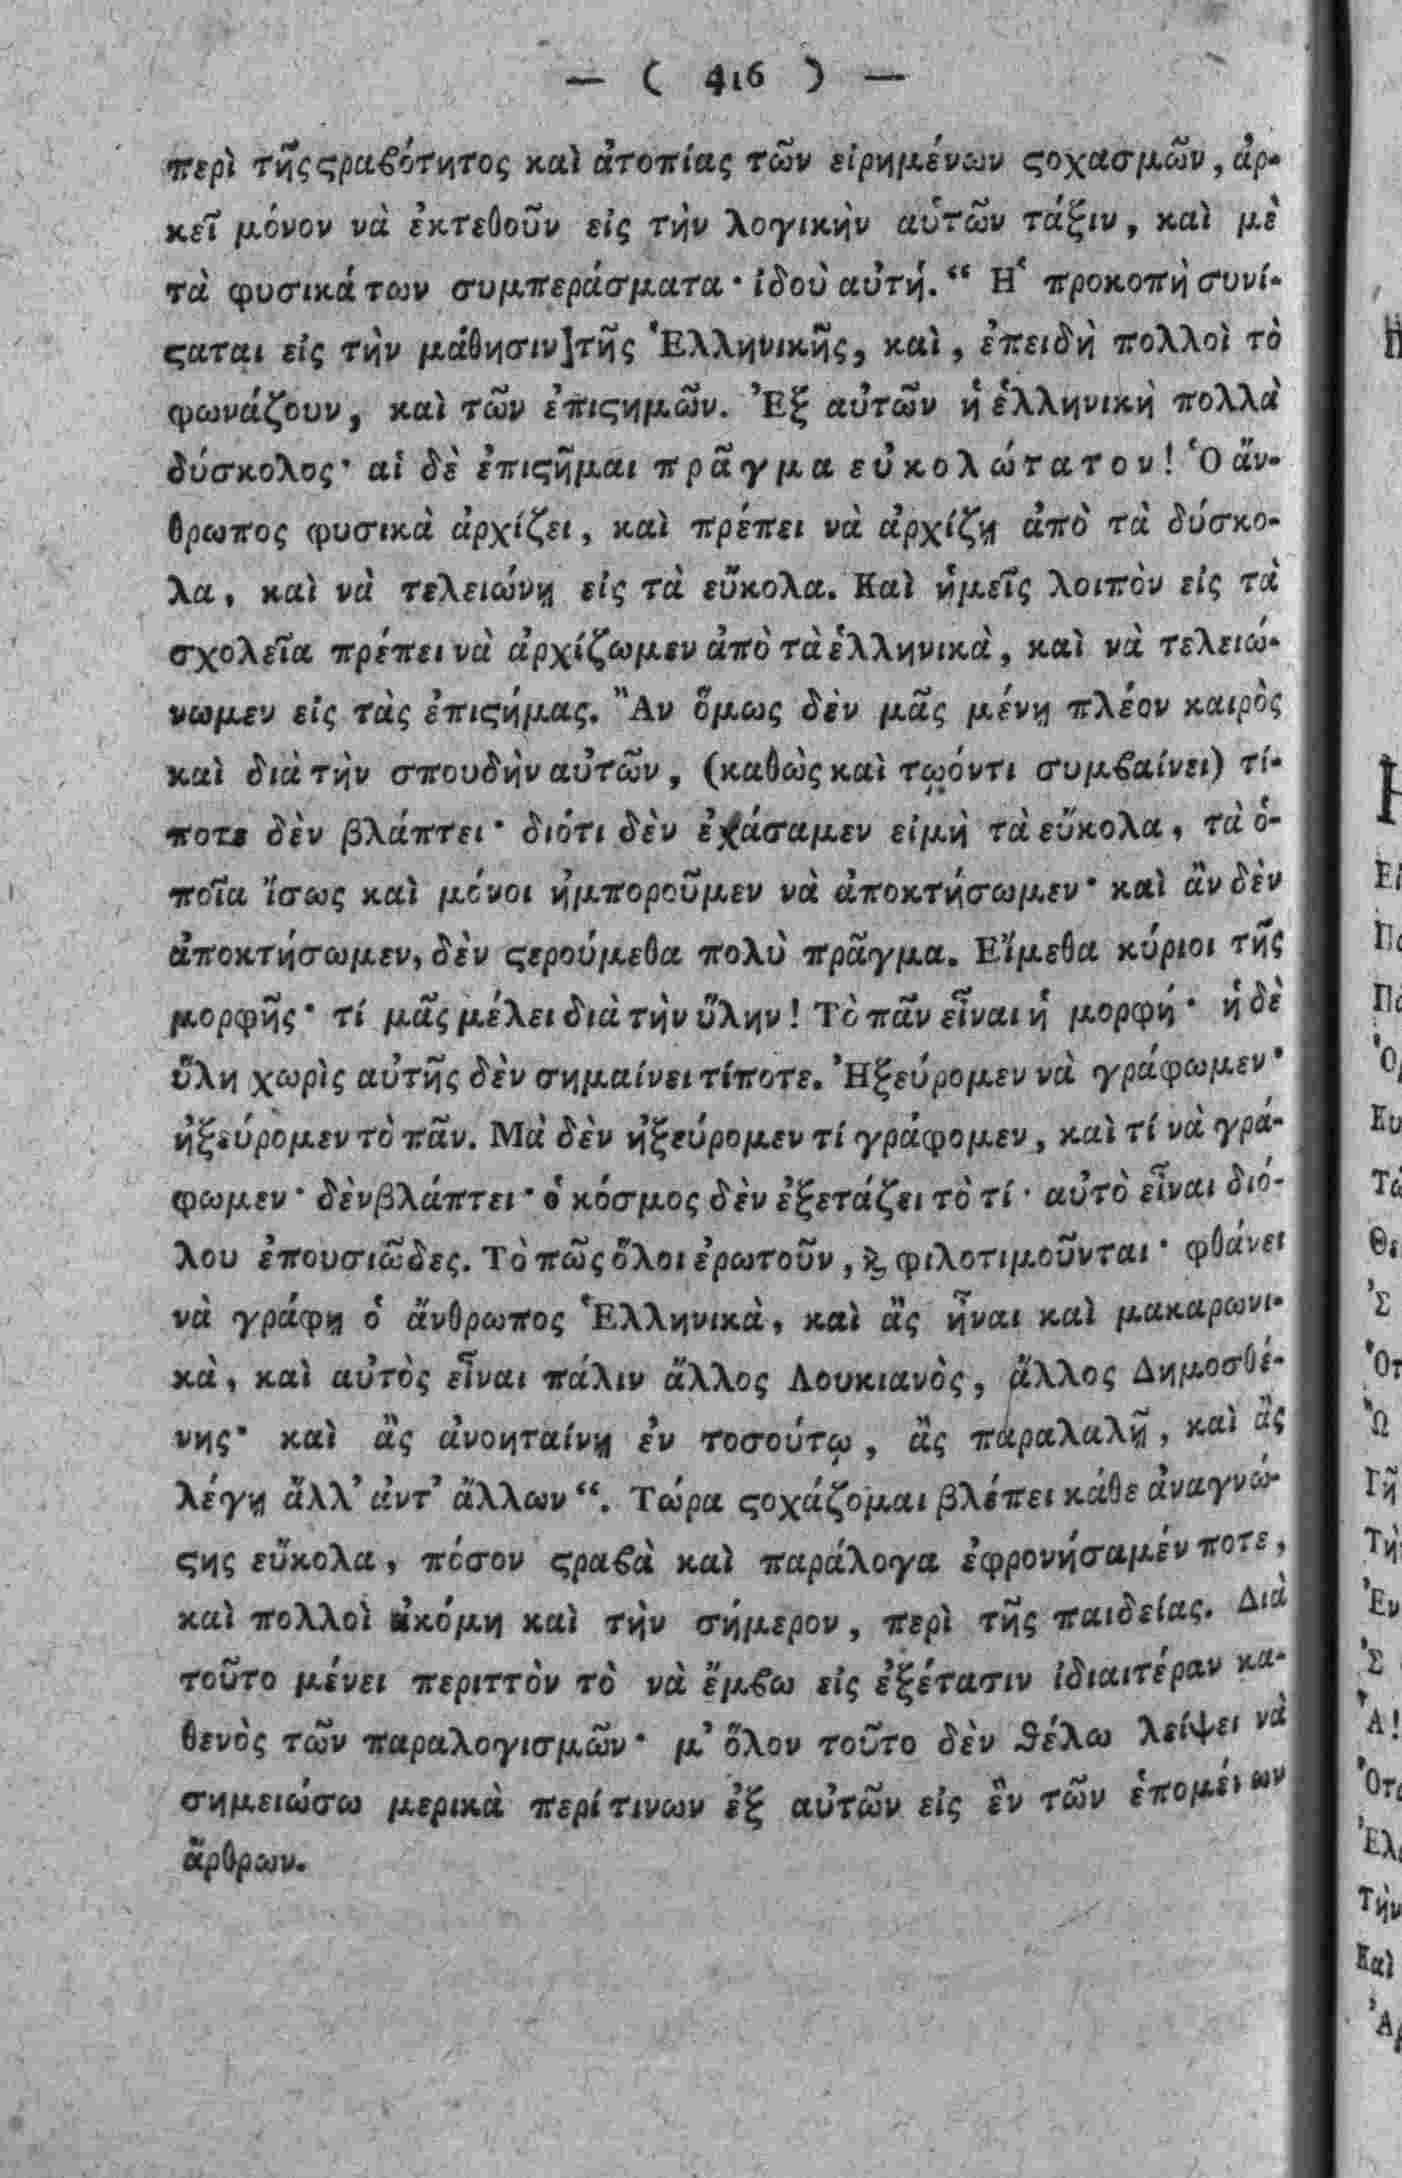 — ( 416 ) —
περὶ τῆς ϛραϐότητος καὶ ἀτοπίας τῶν εἰρημένων ϛοχασμῶν, ἀρ-
κεῖ μόνον νὰ ἐκτεθοῦν εἰς τὴν λογικὴν αὑτῶν τάξιν, καὶ μὲ
τὰ φυσικά των συμπεράσματα· ἰδοὺ αὐτή. “ Ἡ προκοπὴ συνί-
ϛαται εἰς τὴν μάθησιν]τῆς Ἑλληνικῆς, καὶ, ἐπειδὴ πολλοὶ τὸ
φωνάζουν, καὶ τῶν ἐπιϛημῶν. Ἐξ αὐτῶν ἡ ἑλληνικὴ πολλὰ
δύσκολος· αἱ δὲ ἐπιϛῆμαι πρᾶγμα εὐκολώτατον! Ὁ ἄν-
θρωπος φυσικὰ ἀρχίζει, καὶ πρέπει νὰ ἀρχίζῃ ἀπὸ τὰ δύσκο-
λα, καὶ νὰ τελειώνῃ εἰς τὰ εὔκολα. Καὶ ἡμεῖς λοιπὸν εἰς τὰ
σχολεῖα πρέπει νὰ ἀρχίζωμεν ἀπὸ τὰ ἑλληνικὰ, καὶ νὰ τελειώ-
νωμεν εἰς τὰς ἐπιϛήμας. Ἂν ὅμως δὲν μᾶς μένῃ πλέον καιρὸς
καὶ διὰ τὴν σπουδὴν αὐτῶν, (καθὼς καὶ τῳόντι συμϐαίνει) τί-
ποτε δὲν βλάπτει· διότι δὲν ἐχάσαμεν εἰμὴ τὰ εὔκολα, τὰ ὁ-
ποῖα ἴσως καὶ μόνοι ἠμποροῦμεν νὰ ἀποκτήσωμεν· καὶ ἂν δὲν
ἀποκτήσωμεν, δὲν ϛερούμεθα πολὺ πρᾶγμα. Εἴμεθα κύριοι τῆς
μορφῆς· τί μᾶς μέλει διὰ τὴν ὕλην! Τὸ πᾶν εἶναι ἡ μορφή· ἡ δὲ
ὕλη χωρὶς αὐτῆς δὲν σημαίνει τίποτε. Ἠξεύρομεν νὰ γράφωμεν·
ἠξεύρομεν τὸ πᾶν. Μὰ δὲν ἠξεύρομεν τί γράφομεν, καὶ τί νὰ γρά-
φωμεν· δὲν βλάπτει· ὁ κόσμος δὲν ἐξετάζει τὸ τί· αὐτὸ εἶναι διό-
λου ἐπουσιῶδες. Τὸ πῶς ὅλοι ἐρωτοῦν, ϗ φιλοτιμοῦνται· φθάνει
νὰ γράφῃ ὁ ἄνθρωπος Ἑλληνικὰ, καὶ ἂς ἦναι καὶ μακαρωνι-
κὰ, καὶ αὐτὸς εἶναι πάλιν ἄλλος Λουκιανὸς, ἄλλος Δημοσθέ-
νης· καὶ ἂς ἀνοηταίνῃ ἐν τοσούτῳ, ἂς παραλαλῇ, καὶ ἂς
λέγῃ ἄλλ’ ἀντ’ ἄλλων “. Τώρα ϛοχάζομαι βλέπει κάθε ἀναγνώ-
ϛης εὔκολα, πόσον ϛραϐὰ καὶ παράλογα ἐφρονήσαμέν ποτε,
καὶ πολλοὶ ἀκόμη καὶ τὴν σήμερον, περὶ τῆς παιδείας. Διὰ
τοῦτο μένει περιττὸν τὸ νὰ ἔμϐω εἰς ἐξέτασιν ἰδιαιτέραν κα-
θενὸς τῶν παραλογισμῶν· μ’ ὅλον τοῦτο δὲν ϑέλω λείψει νὰ
σημειώσω μερικὰ περί τινων ἐξ αὐτῶν εἰς ἓν τῶν ἑπομένων
ἄρθρων.